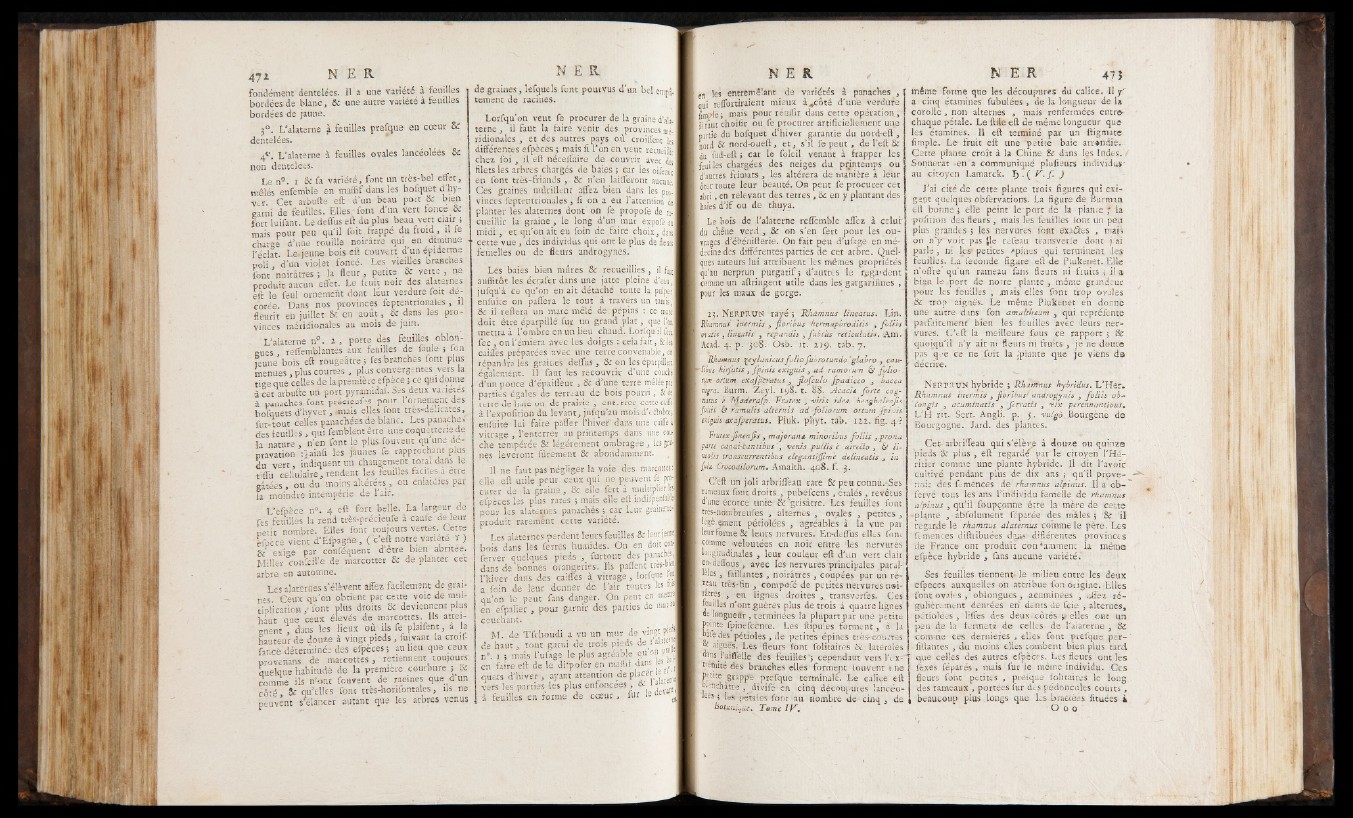 472 N E R
fondément dentelées. Il a une variété à feuilles
bordées de blanc, & une autre variété à feuilles
bordées de jaune.
3°. L'alaterne à feuilles presque en cœur &
dentelées.
4°. L'alaterne à feuilles ovales lancéolées &
non dentelées.
Le n°. 1 & sa variété, sont un très-bel effet,
mêlés ensemble en massif dans les bosquet d'hy-
ver. Cet arbuste est d'un beau port & bien
garni de feuilles. Elles sont d'un vert foncé &
fort luisant. Le dessus est du plus beau vert clair ;
mais pour peu qu'il soit frappé du froid, il se
charge d'une rouille noirâtre qui en diminue
l'éclat. Le jeune bois est couvert d'un épiderme
poli, d'un violet foncé. Les vieilles branches
sont noirâtres ; la fleur, petite & verte, ne
produit aucun effet. Le fruit noir des alaternes
est le seul ornement dont leur verdure soit dé-
corée. Dans nos provinces septentrionales, il
fleurit en juillet & en août, & dans les pro-
vinces méridionales au mois de juin.
L'alaterne n°. 2, porte des feuilles oblon-
gues, ressemblantes aux feuilles de saule ; son
jeune bois est rougeâtre ; ses branches sont plus
menues, plus courtes, plus convergentes vers la
tige que celles de la première espèce ; ce qui donne
à cet arbuste un port pyramidal. Ses deux variétés
à panaches sont précieuses pour l'ornement des
bosquets d'hyver, mais elles sont très-délicates,
sur-tout celles panachées de blanc. Les panaches
des feuilles, qui semblent être une coquetterie de
la nature, n'en sont le plus souvent qu'une dé-
pravation ; ainsi les jaunes se rapprochant plus
du vert, indiquent un changement total dans le
tissu cellulaire, rendent les feuilles faciles à être
gâtées, ou du moins altérées, ou enlaidies par
la moindre intempérie de l'air.
L'espèce n°. 4 est fort belle. La largeur de
ses feuilles la rend très-précieuse à cause de leur
petit nombre. Elles sont toujours vertes. Cette
espèce vient d'Espagne, ( c'est notre variété )
& exige par conséquent d'être bien abritée.
Miller conseille de marcotter & de planter cet
arbre en automne.
Les alaternes s'élèvent assez facilement de grai-
nes. Ceux qu'on obtient par cette voie de mul-
tiplication, sont plus droits & deviennent plus
haut que ceux élevés de marcottes. Ils attei-
gnent, dans les lieux où ils se plaisent, à la
hauteur de douze à vingt pieds, suivant la crois-
sance déterminée des espèces ; au lieu que ceux
provenans de marcottes, retiennent toujours
quelque habitude de la première courbure ; &
comme ils n'ont souvent de racines que d'un
côté, & qu'elles sont très-horisontales, ils ne
peuvent s'élancer autant que les arbres venus
N E R
de graines, lesquels sont pourvus d'un bel empâ-
tement de racines.
Lorsqu'on veut se procurer de la graine d'ala-
terne, il faut la faire venir des provinces mé-
ridionales, et des autres pays où croissent les
différentes espèces ; mais si l'on en veut recueillir
chez soi, il est nécessaire de couvrir avec des
filets les arbres chargés de baies ; car les oiseaux
en sont très-friands, & n'en laisseront aucune.
Ces graines mûrissent assez bien dans les pro-
vinces septentrionales, si on a eu l'attention de
planter les alaternes dont on se propose de re-
cueillir la graine, le long d'un mur exposé au
midi, et qu'on ait eu soin de faire choix, dans
cette vue, des individus qui ont le plus de fleurs
femelles ou de fleurs androgynes.
Les baies bien mûres & recueillies, il faut
aussitôt les écraser dans une jatte pleine d'eau,
jusqu'à ce qu'on en ait détaché toute la pulpe ;
ensuite on passera le tout à travers un tamis,
& il restera un marc mêlé de pépins : ce marc
doit être éparpillé sur un grand plat, que l'on
mettra à l'ombre en un lieu chaud. Lorsqu'il sera
sec, on l'émiera avec les doigts : cela fait, & les
caisses préparées avec une terre convenable, on
répandra les graines dessus, & on les éparpillera
également. Il faut les recouvrir d'une couche
d'un pouce d'épaisseur, & d'une terre mêlée par
parties égales de terreau de bois pourri, & de
terre de haie ou de prairie, enterrez cette caisse
à l'exposition du levant, jusqu'au mois d'octobre,
ensuite lui faire passer l'hiver dans une caisse à
vitrage, l'enterrer au printemps dans une cou-
che tempérée & légérement ombragée, les grai-
nes leveront sûrement & abondamment.
Il ne faut pas négliger la voie des marcottes :
elle est utile pour ceux qui ne peuvent se pro-
curer de la graine, & elle sert à multiplier les
espèces les plus rares ; mais elle est indispensable
pour les alaternes panachés ; car leur graine re-
produit rarement cette variété.
Les alaternes perdent leurs feuilles & leur jeune
bois dans les serres humides. On en doit con-
server quelques pieds, surtout des panachés,
dans de bonnes orangeries. Ils passent très-bien
l'hiver dans des caisses à vitrage, lorsque l'on
a soin de leur donner de l'air toutes les fois
qu'on le peut sans danger. On peut en mettre
en espalier, pour garnir des parties de mur au
couchant.
M. de Tschoudi a vu un mur de vingt pieds
de haut, tout garni de trois pieds de l'alaterne
n°. 1 ; mais l'usage le plus agréable qu'on puisse
en faire est de le disposer en massif dans les bos-
quets d'hiver, ayant attention de placer le n°.
vers les parties les plus enfoncées, & l'alaterne
à feuilles en forme de cœur, sur le devant,
N E R
en les entremêlant de variétés à panaches,
qui ressortiraient mieux à côté d'une verdure
simple ; mais pour réussir dans cette opération,
il faut choisir ou se procurer artificiellement une
partie du bosquet d'hiver garantie du nord-est,
nord & nord-ouest, et, s'il se peut, de l'est &
du sud-est ; car le soleil venant à frapper les
feuilles chargées des neiges du printemps ou
d'autres frimats, les altérera de manière à leur
ôter toute leur beauté. On peut se procurer cet
abri, en relevant des terres, & en y plantant des
haies d'if ou de thuya.
Le bois de l'alaterne ressemble assez à celui
du chêne verd, & on s'en sert pour les ou-
vrages d'ébénisterie. On fait peu d'usage en mé-
decine des différentes parties de cet arbre. Quel-
ques auteurs lui attribuent les mêmes propriétés
qu'au nerprun purgatif ; d'autres le regardent
comme un astringent utile dans les gargarismes,
pour les maux de gorge.
23. NERPRUN rayé ; Rhamnus lineatus. Lin.
Rhamnus inermis, floribus hermaphroditis, foliis
ovatis, lineatis, repandis, subtùs reticulatis. Am.
Acad. 4. p. 308. Osb. it. 219. tab. 7.
Rhamnus zeylanicus folio subrotundo glabro, cau-
libus hirsutis, spinis exiguis, ad ramorum & folio-
rum ortum exasperatus, flosculo spadiceo, bacca
nigra. Burm. Zeyl. 198. t. 88. Acacia forte cog-
exiguis exasperatus. Pluk. phyt. tab. 122. fig. 4 ?
Frutex sinensis, majoranæ minoribus foliis, pronâ
Amalth. 408. f. 3.
C'est un joli arbrisseau rare & peu connu. Ses
rameaux sont droits, pubescens, étalés, revêtus
d'une écorce unie & grisâtre. Les feuilles sont
très-nombreuses, alternes, ovales, petites,
légèrement pétiolées, agréables à la vue par
leur forme & leurs nervures. En-dessus elles sont
comme veloutées en noir entre les nervures
longitudinales, leur couleur est d'un vert clair
en-dessous, avec les nervures principales paral-
lèles, saillantes, noirâtres, coupées par un ré-
seau très-fin, composé de petites nervures noi-
râtres, en lignes droites, transverses. Ces
feuilles n'ont guères plus de trois à quatre lignes
de longueur, terminées la plupart par une petite
pointe spinescente. Les stipules forment, à la
base des pétioles, de petites épines très-courtes
& aiguës. Les fleurs sont solitaires & latérales
dans l'aisselle des feuilles ; cependant vers l'ex-
trémité des branches elles forment souvent une
petite grappe presque terminale. Le calice est
divisé en cinq découpures lancéo-
lées ; les pétales sont au nombre de cinq, de
Botanique. Tome IV.
N E R 473
même forme que les découpures du calice. Il y
a cinq étamines subulées, de la longueur de la
corolle, non alternes, mais renfermées entre
chaque pétale. Le style est de même longueur que
les étamines. Il est terminé par un stigmate
simple. Le fruit est une petite baie arrondie.
Cette plante croît à la Chine & dans les Indes.
Sonnerat en a communiqué plusieurs individus
au citoyen Lamarck. ♄ ( V. s. )
J'ai cité de cette plante trois figures qui exi-
gent quelques observations. La figure de Burman
est bonne ; elle peint le port de la plante, la
position des fleurs, mais les feuilles sont un peu
plus grandes ; les nervures sont exactes, mais
on n'y voit pas le réseau transverse dont j'ai
parlé, ni les petites épines qui terminent les
feuilles. La seconde figure est de Plukenet. Elle
n'offre qu'un rameau sans fleurs ni fruits ; il a
bien le port de notre plante, même grandeur
pour les feuilles, mais elles sont trop ovales
& trop aiguës. Le même Plukenet en donne
une autre dans son amaltheum, qui représente
parfaitement bien les feuilles avec leurs ner-
vures. C'est la meilleure sous ce rapport ; &
quoiqu'il n'y ait ni fleurs ni fruits, je ne doute
pas que ce ne soit la plante que je viens de
décrire.
NERPRUN hybride ; Rhamnus hybridus. L'Hér.
Rhamnus inermis, floribus androgynis, foliis ob-
longis, acuminatis, serratis, vix perennantibus.
L'Hérit. Sert. Angli. p. 5. vulgò Bourgene de
Bourgogne. Jard. des plantes.
Cet arbrisseau qui s'élève à douze ou quinze
pieds & plus, est regardé par le citoyen l'Hé-
ritier comme une plante hybride. Il dit l'avoir
cultivé pendant plus de dix ans ; qu'il prove-
noit des semences du rhamnus alpinus. Il a ob-
servé tous les ans l'individu femelle de rhamnus
alpinus, qu'il soupçonne être la mère de cette
plante, absolument séparée des mâles ; & il
regarde le rhamnus alaternus comme le père. Les
semences distribuées dans différentes provinces
de France ont produit constamment la même
espèce hybride, sans aucune variété.
Ses feuilles tiennent le milieu entre les deux
espèces auxquelles on attribue son origine. Elles
sont ovales, oblongues, acuminées, assez ré-
gulièrement dentées en dents de scie, alternes,
pétiolées, lisses des deux côtés ; elles ont un
peu de la fermeté de celles de l'alaterne, &
comme ces dernières, elles sont presque per-
sistantes, du moins elles tombent bien plus tard
que celles des autres espèces. Les fleurs ont les
sexes séparés, mais sur le même individu. Ces
fleurs sont petites, presque solitaires le long
des rameaux, portées sur des pédoncules courts,
beaucoup plus longs que les bractées situées à
O o o